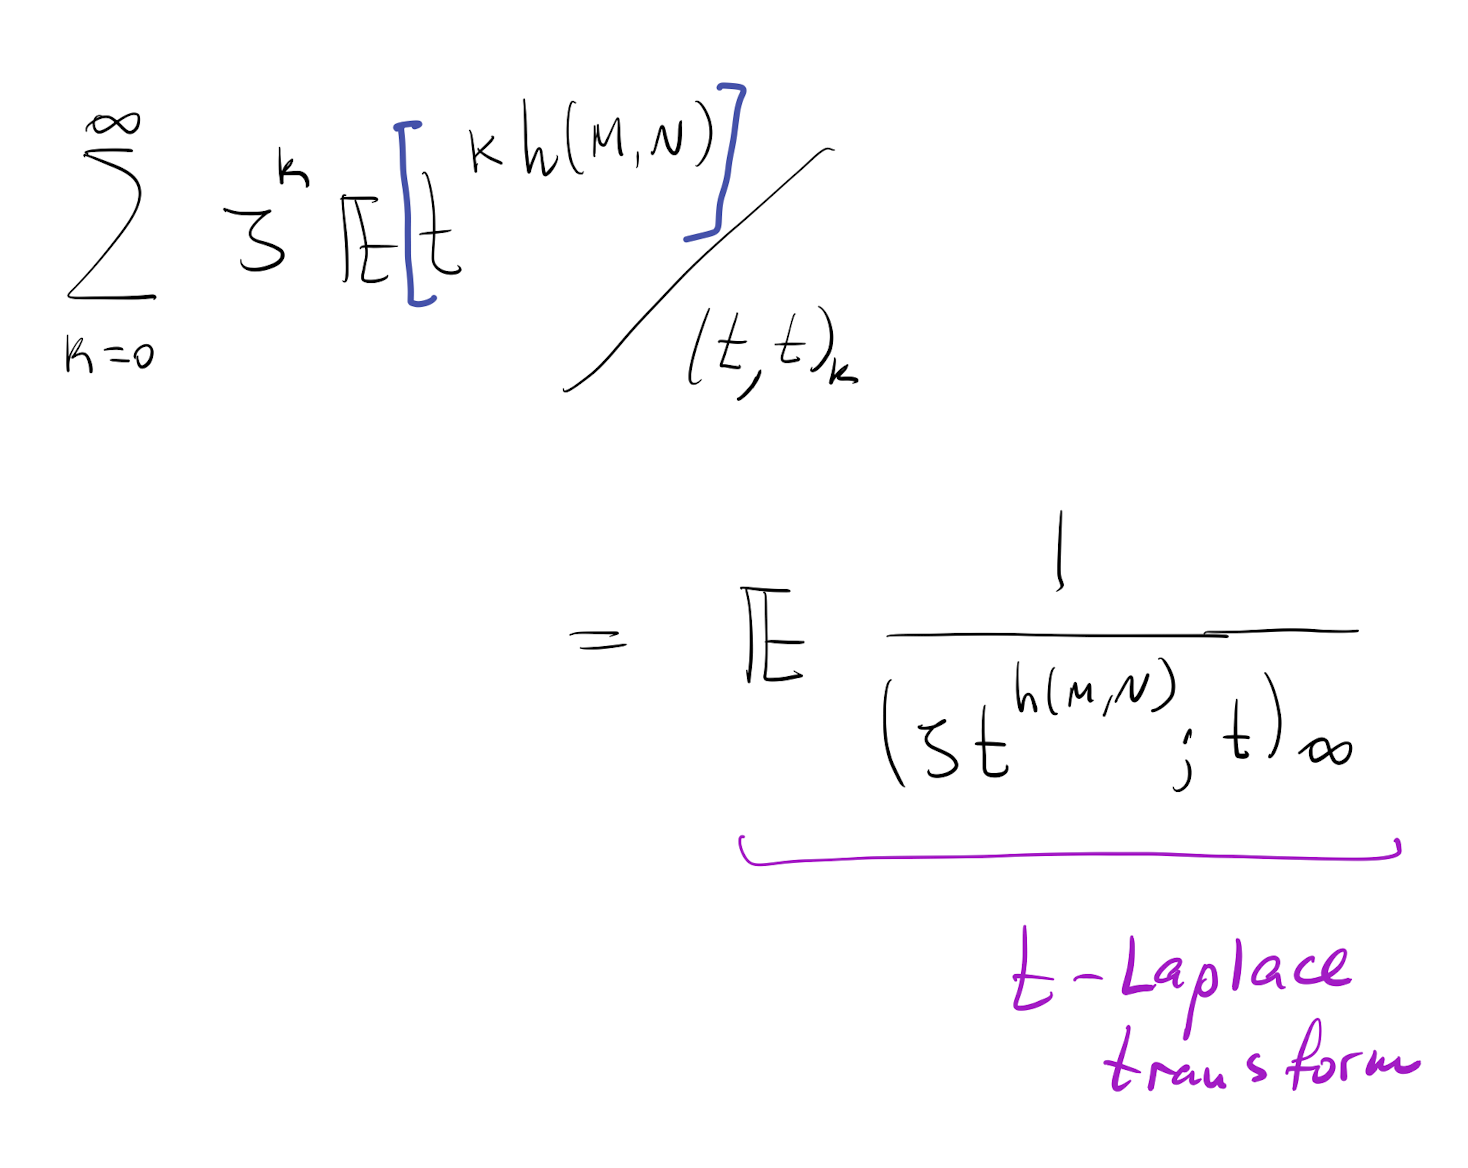 ∑_{k=0}^{∞} ζ^k 𝔼[t^{k h(M,N)}] / (t,t)_k
= 𝔼 1/(ζt^{h(M,N)}; t)_∞
t-Laplace
transform